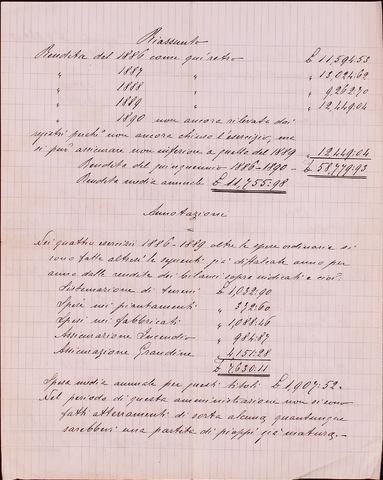 Riassunto
Rendita del 1886 come qui retro £ 11,594.53
" 1887 " " 13,024.62
" 1888 " " 9,262.70
" 1889 " " 12,449.04
" 1890 non ancora rilevata dai
registri perchè non ancora chiuso l'esercizio, ma
si può assicurare non inferiore a quella del 1889 " 12,449.04
Rendita del quinquennio 1886-1890 - £ 58,779.93
Rendita media annuale £ 11,755.98
Annotazione
Nei quattro esercizi 1886-1889 oltre le spese ordinarie si
sono fatte altresì le seguenti già difalcate anno per
anno dalle rendite dei bilanci sopra indicati e cioè:
Sistemazione di terreni £ 1,032.90
Spesi nei piantamenti " 372.60
Spesi nei fabbricati " 1,088.46
Assicurazione Incendio " 984.87
Assicurazione Grandine " 4,151.28
£ 7,630.11
Spesa media annuale per questi titoli £ 1,907.52.
Nel periodo di questa amministrazione non si sono
fatti atterramenti di sorta alcuna quantunque
sarebbevi una partita di pioppi già matura. -